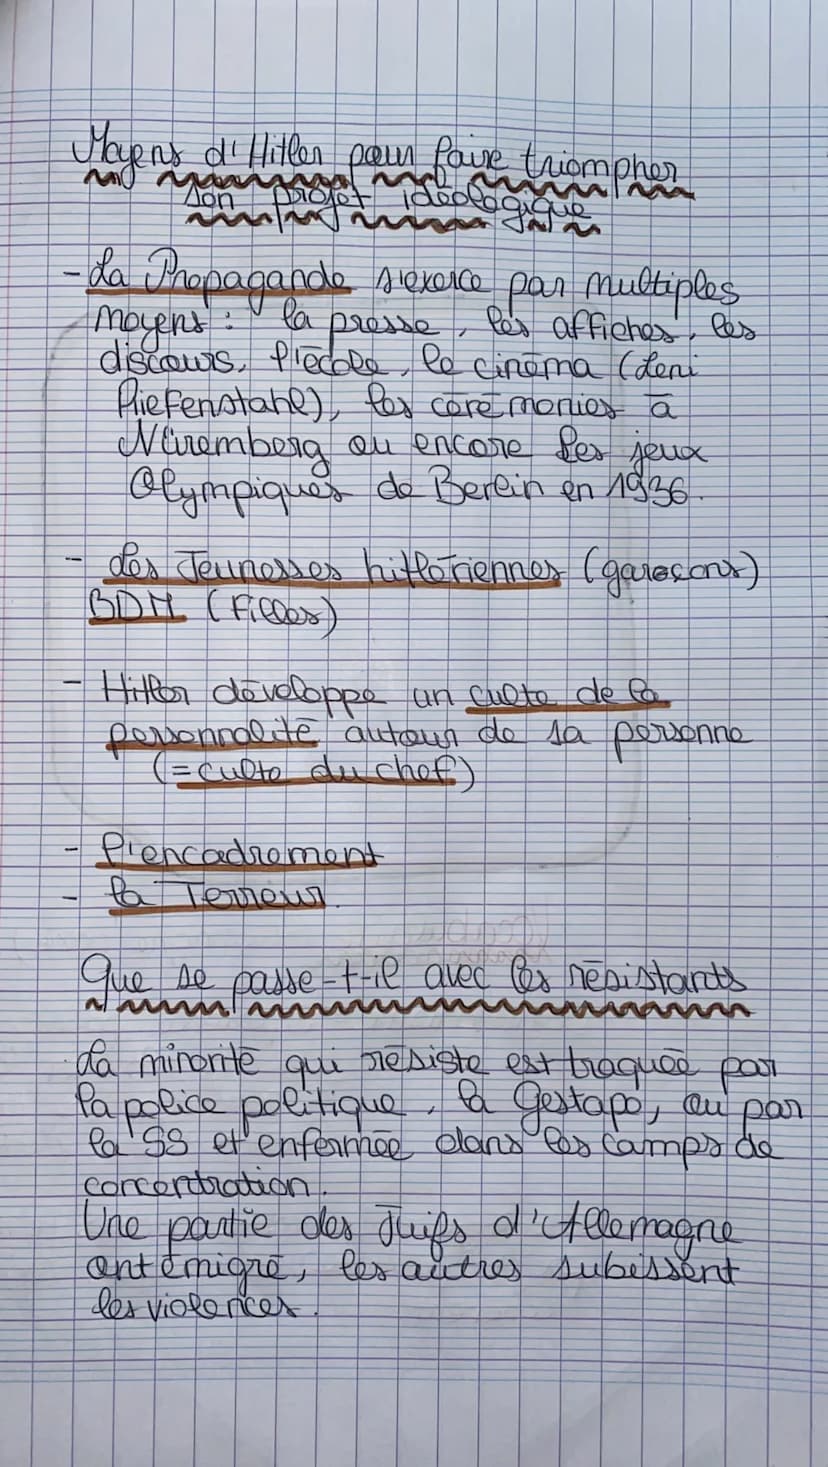 Moyens d'Hitler pour faire triompher
son projet idéologique
- La Propagande s'exerce par multiples
moyens : la presse, les affiches, les
discours, l'école, le cinéma (Leni
Riefenstahl), les cérémonies à
Nüremberg ou encore les jeux
Olympiques de Berlin en 1936.
- des Jeunesses hitlériennes (garçons)
BDM (Filles)
- Hitler développe un culte de la
personnalité autour de sa personne
(= culte du chef)
- l'encadrement
- la Terreur.
Que se passe-t-il avec les résistants
La minorité qui résiste est traquée par
la police politique, la Gestapo, ou par
la SS et enfermée dans les camps de
concentration.
Une partie des Juifs d'Allemagne
ont émigré, les autres subissent
les violences.